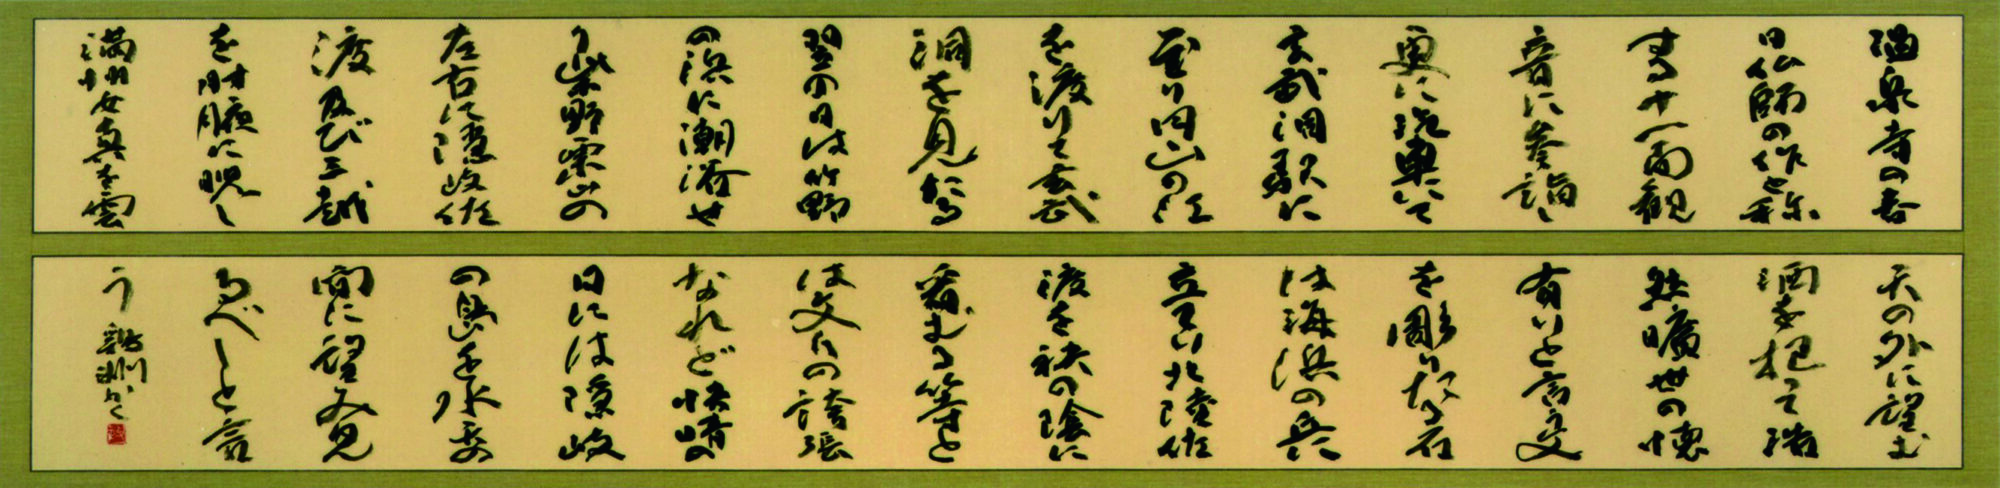 温泉寺の春
日仏師の作と称
する十一面観
音に参詣し
更に汽車にて
玄武洞駅に
至り円山の江
を渡りて玄武
洞を見たる
翌の日は竹野
の浜に潮浴せ
り柴野栗山の
左右に隠岐佐
渡及び三越
を肘腋に睨し
満州女真を雲
天の外に望む
酒を把て潅
然曠世の懐
有りと言う文
を彫りたる石
は海浜の丘に
立てり北陸佐
渡を袂の陰に
看むる等と
は文人の誇張
なれど快晴の
日には隠岐
の島を水雲の
間に望み見
るべしと言
う 翠洲かく